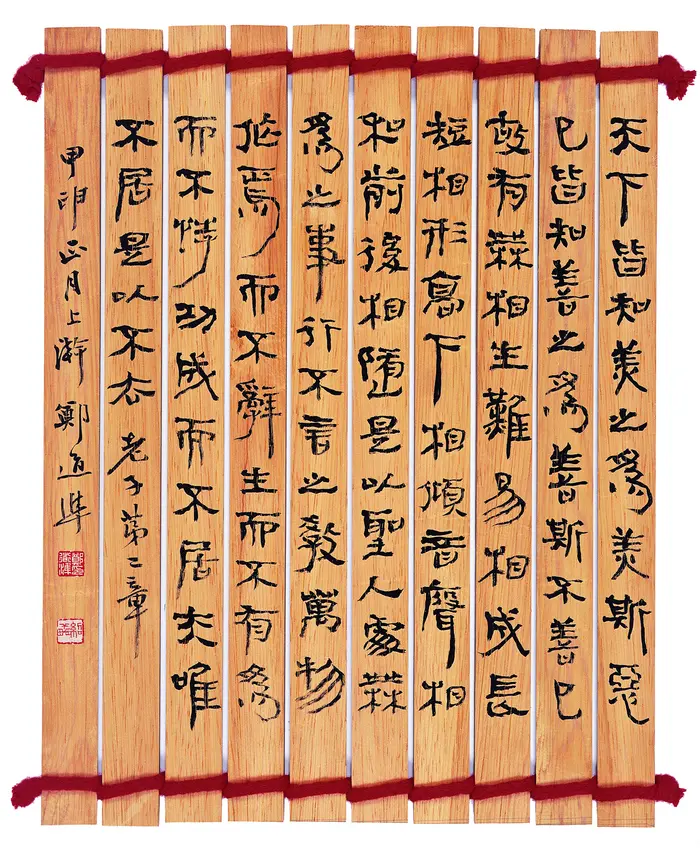 天下皆知美之為美斯惡
已皆知善之為善斯不善已
故有無相生難易相成長
短相形高下相傾音聲相
和前後相隨是以聖人處無
為之事行不言之教萬物
作焉而不辭生而不有為
而不恃功成而不居夫唯
不居是以不去老子第二章
甲申正月上澣鄭道